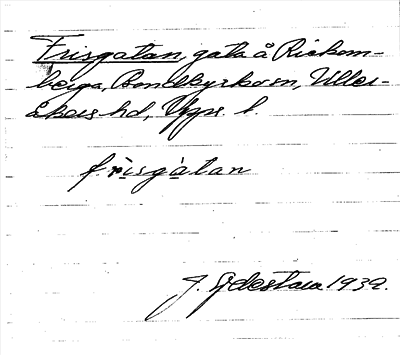 Frisgatan, gata å Rickom-
berga, Bondkyrko sn, Uller-
åkers hd, Upps. l.
frisgatan
J. Sjdestam 1939.